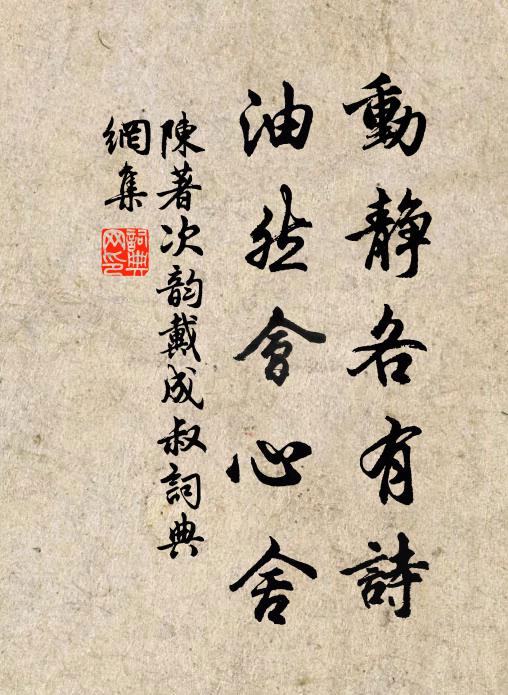 動静各有詩
油然會心舍
陳著次韵戴成叔詞典
網集
詞典網印